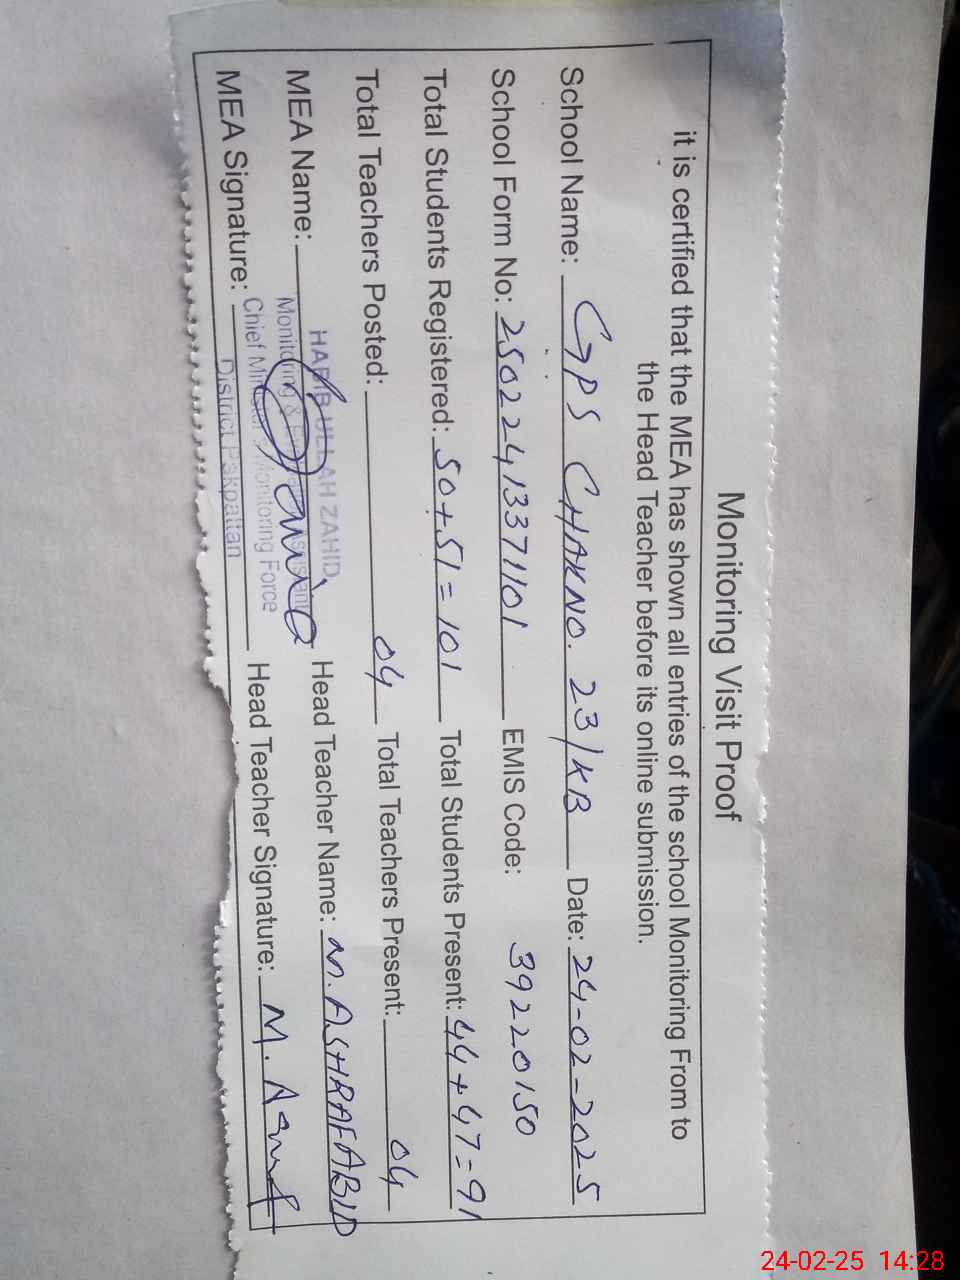 Monitoring Visit Proof
it is certified that the MEA has shown all entries of the school Monitoring From to
the Head Teacher before its online submission.
School Name: GPS CHAKNO. 23/KB Date: 24-02-2025
School Form No: 25022413371101 EMIS Code: 39220150
Total Students Registered: 50+51=101 Total Students Present: 44+47=91
Total Teachers Posted: 04 Total Teachers Present: 04
MEA Name: HABIB ULLAH ZAHID Head Teacher Name: M. ASHRAF ABID
Monitoring & Assistant
MEA Signature: Chief Minister's Monitoring Force Head Teacher Signature: M.
District Pakpattan
24-02-25 14:28